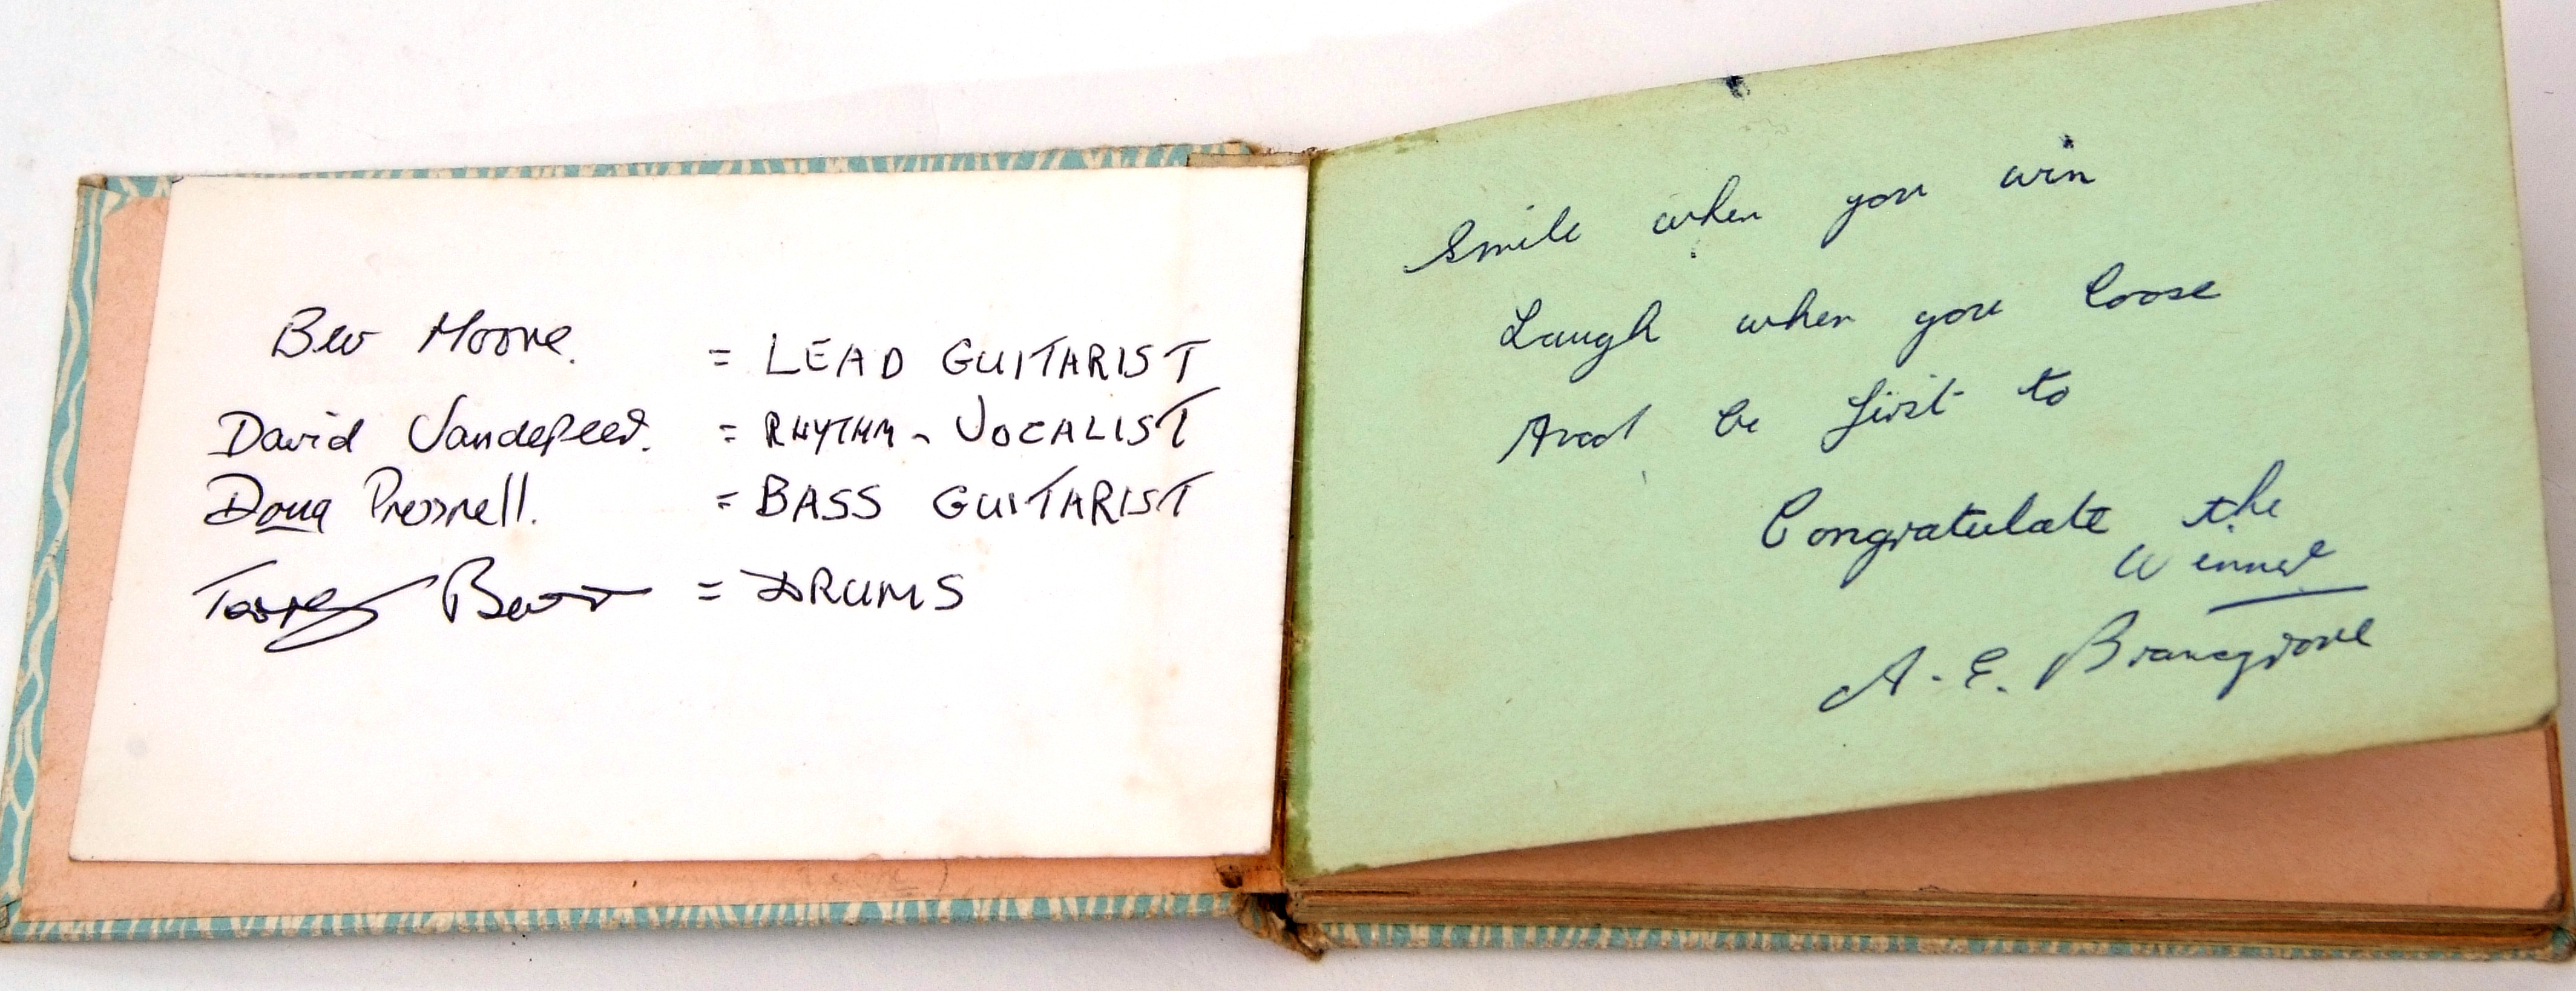 Bev Moore. = LEAD GUITARIST
David = RHYTHM - VOCALIST
Doug Presnell. = BASS GUITARIST
Terry = DRUMS
Smile when you win
Laugh when you loose
And be first to
Congratulate the
Winner
A. E. Bransgrove